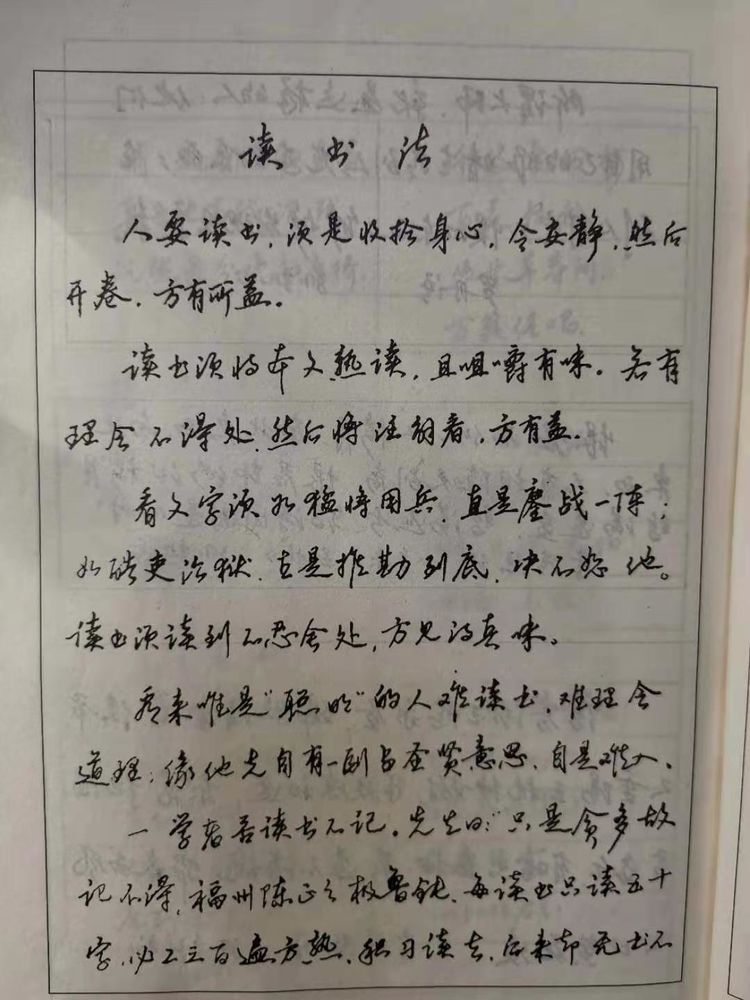 读书法
人要读书，须是收拾身心，令安静，然后
开卷，方有所益。
读书须将本文熟读，且咀嚼有味。若有
理会不得处，然后将注解看，方有益。
看文字须如猛将用兵，直是鏖战一阵；
如酷吏治狱，直是推勘到底，决不恕他。
读书须读到不忍舍处，方见得真味。
看来唯是“聪明”的人难读书，难理会
道理；缘他先自有一副当圣贤意思，自是难入。
一学者苦读书不记。先生曰：“只是贪多故
记不得，福州陈正之极鲁钝，每读书只读五十
字，必二三百遍方熟，积习读去，后来却无书不